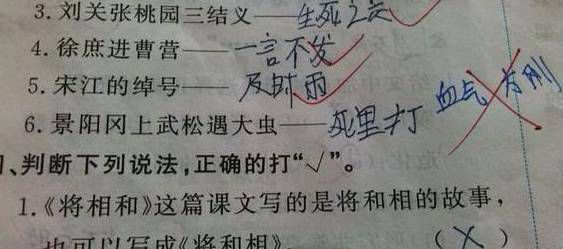 3. 刘关张桃园三结义——生死之交
4. 徐庶进曹营——一言不发
5. 宋江的绰号——及时雨
6. 景阳冈上武松遇大虫——死里打 血气方刚
、判断下列说法,正确的打“√”。
1.《将相和》这篇课文写的是将和相的故事,
也可以写成《将和相》。 (×)